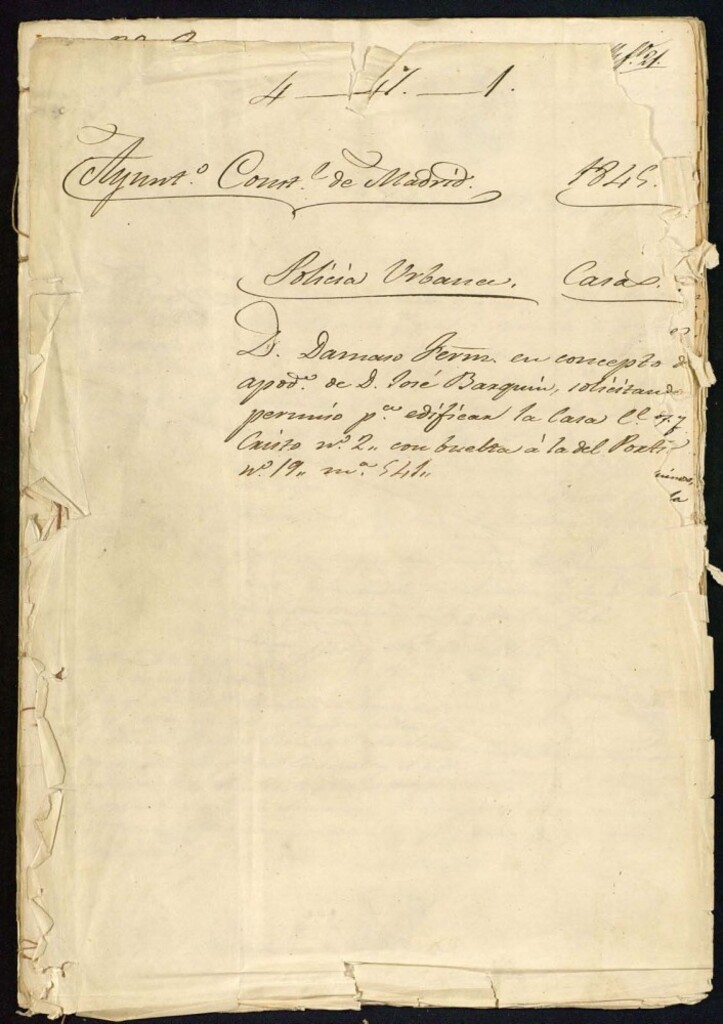 4 — 47. — 1.
Ayunt.º Const.l de Madrid. 1845.
Policia Urbana. Casas.
D. Damaso Ferm. en concepto d
apod.º de D. José Barquin, solicitand
permiso p.ª edificar la Casa C.e
Cristo nº 2,, con buelta á la del Porti
nº 19,, m.ª 541,,
la